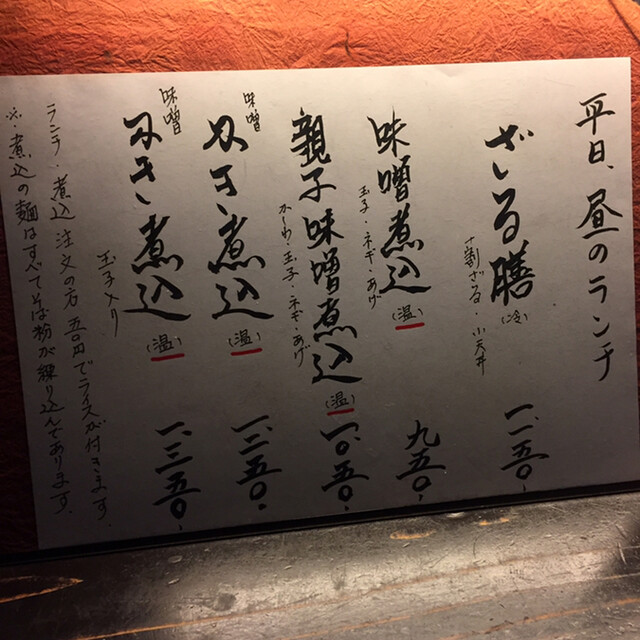 平日、昼のランチ
ざる膳(冷) 一、一五〇-
十割ざる・小天丼
味噌煮込(温) 九五〇-
玉子・ネギ・あげ
親子味噌煮込(温) 一、〇五〇-
かしわ・玉子・ネギ・あげ
味噌
ぬき煮込(温) 一、二五〇-
味噌
天ぬき煮込(温) 一、三五〇-
玉子入り
ランチ・煮込注文の方 五〇円でライスが付きます。
※ 煮込の麺はすべてそば粉が練り込んであります。